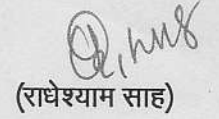 (राधेश्याम साह)